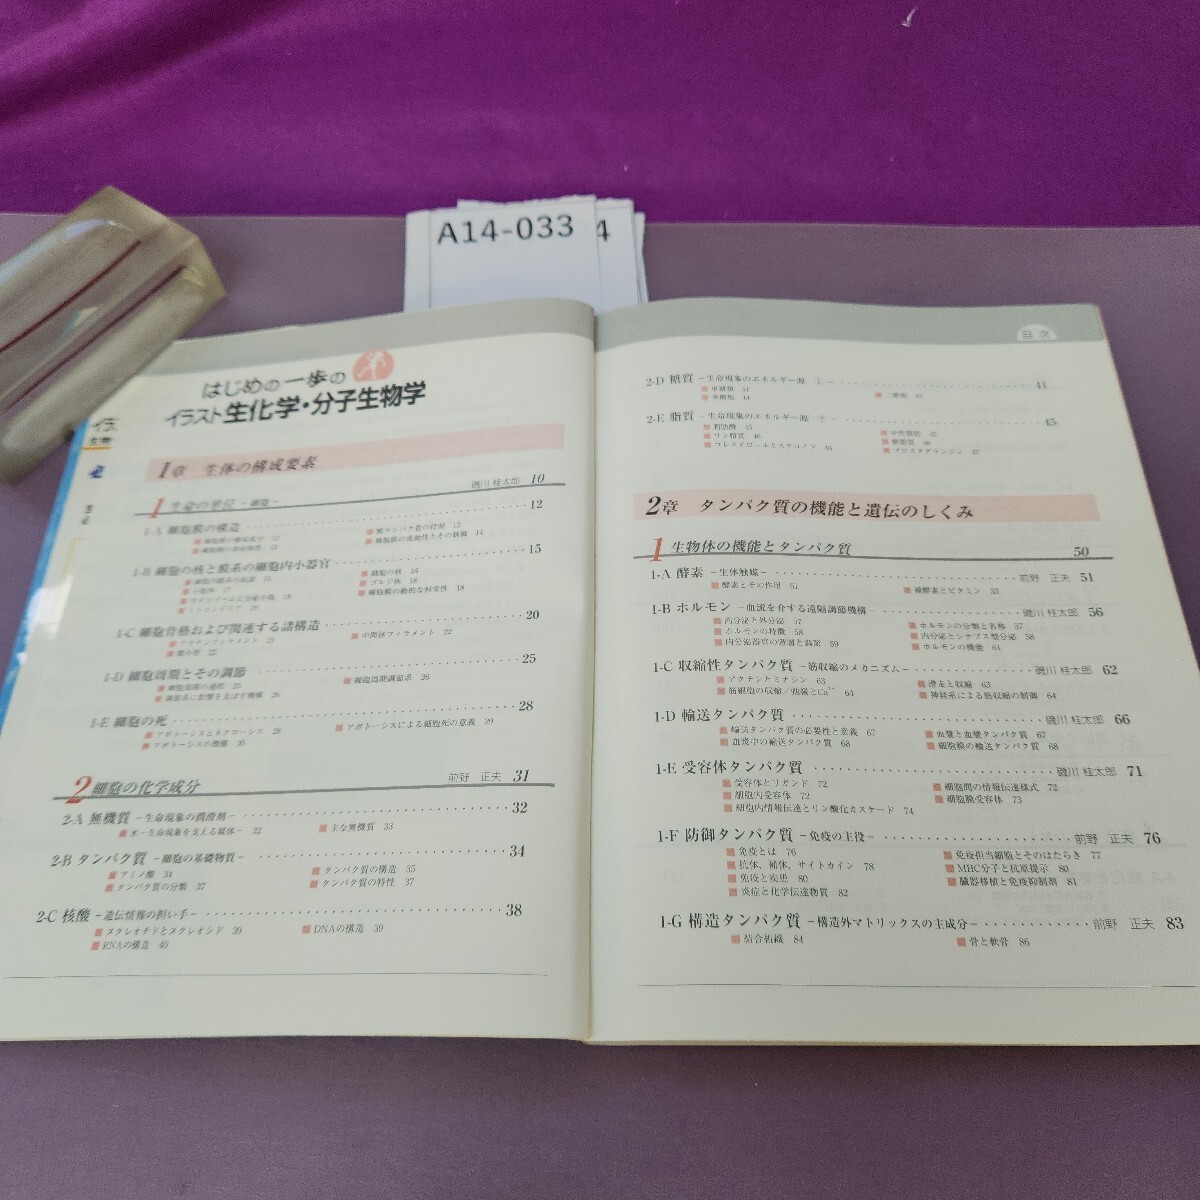 A14-033
4
はじめの一歩の
イラスト 生化学・分子生物学
目次
1章 生体の構成要素
磯川 桂太郎 10
1 生命の単位 −細胞−
1-A 細胞膜の構造 12
1-B 細胞の核と膜系の細胞内小器官 15
細胞の核 16
ゴルジ体 18
細胞膜の動的な恒常性 18
1-C 細胞骨格および関連する諸構造 20
中間径フィラメント 22
1-D 細胞周期とその調節 25
細胞周期調節系 26
1-E 細胞の死 28
アポトーシスとネクローシス 28
アポトーシスによる細胞死の意義 29
アポトーシスの機構 30
2 細胞の化学成分 前野 正夫 31
2-A 無機質 −生命現象の潤滑剤− 32
水−生命現象を支える媒体− 32
主な無機質 33
2-B タンパク質 −細胞の基礎物質− 34
アミノ酸 34
タンパク質の構造 35
タンパク質の分類 37
タンパク質の特性 37
2-C 核酸 −遺伝情報の担い手− 38
ヌクレオチドとヌクレオシド 39
DNAの構造 39
RNAの構造 40
2-D 糖質 −生命現象のエネルギー源 ①− 41
単糖類 41
二糖類 43
多糖類 44
2-E 脂質 −生命現象のエネルギー源 ②− 45
脂肪酸 45
中性脂肪 45
リン脂質 46
糖脂質 46
コレステロールとステロイド 46
プロスタグランジン 47
2章 タンパク質の機能と遺伝のしくみ
1 生物体の機能とタンパク質 50
1-A 酵素 −生体触媒− 前野 正夫 51
酵素とその作用 51
補酵素とビタミン 53
1-B ホルモン −血流を介する遠隔調節機構− 磯川 桂太郎 56
内分泌と外分泌 57
ホルモンの分類と名称 57
ホルモンの特徴 58
内分泌とシナプス型分泌 58
内分泌器官の発生と局在 59
ホルモンの機能 61
1-C 収縮性タンパク質 −筋収縮のメカニズム− 磯川 桂太郎 62
アクチンとミオシン 63
滑走と収縮 63
筋細胞の収縮／弛緩とCa²⁺ 64
神経系による筋収縮の制御 64
1-D 輸送タンパク質 磯川 桂太郎 66
輸送タンパク質の必要性と意義 67
血漿と血漿タンパク質 67
血漿中の輸送タンパク質 68
細胞膜の輸送タンパク質 68
1-E 受容体タンパク質 磯川 桂太郎 71
受容体とリガンド 72
細胞間の情報伝達様式 72
細胞内受容体 72
細胞膜受容体 73
細胞内情報伝達とリン酸化カスケード 74
1-F 防御タンパク質 −免疫の主役− 前野 正夫 76
免疫とは 76
免疫担当細胞とそのはたらき 77
抗体、補体、サイトカイン 78
MHC分子と抗原提示 80
免疫と疾患 80
臓器移植と免疫抑制剤 81
炎症と化学伝達物質 82
1-G 構造タンパク質 −構造外マトリックスの主成分− 前野 正夫 83
結合組織 84
骨と軟骨 86